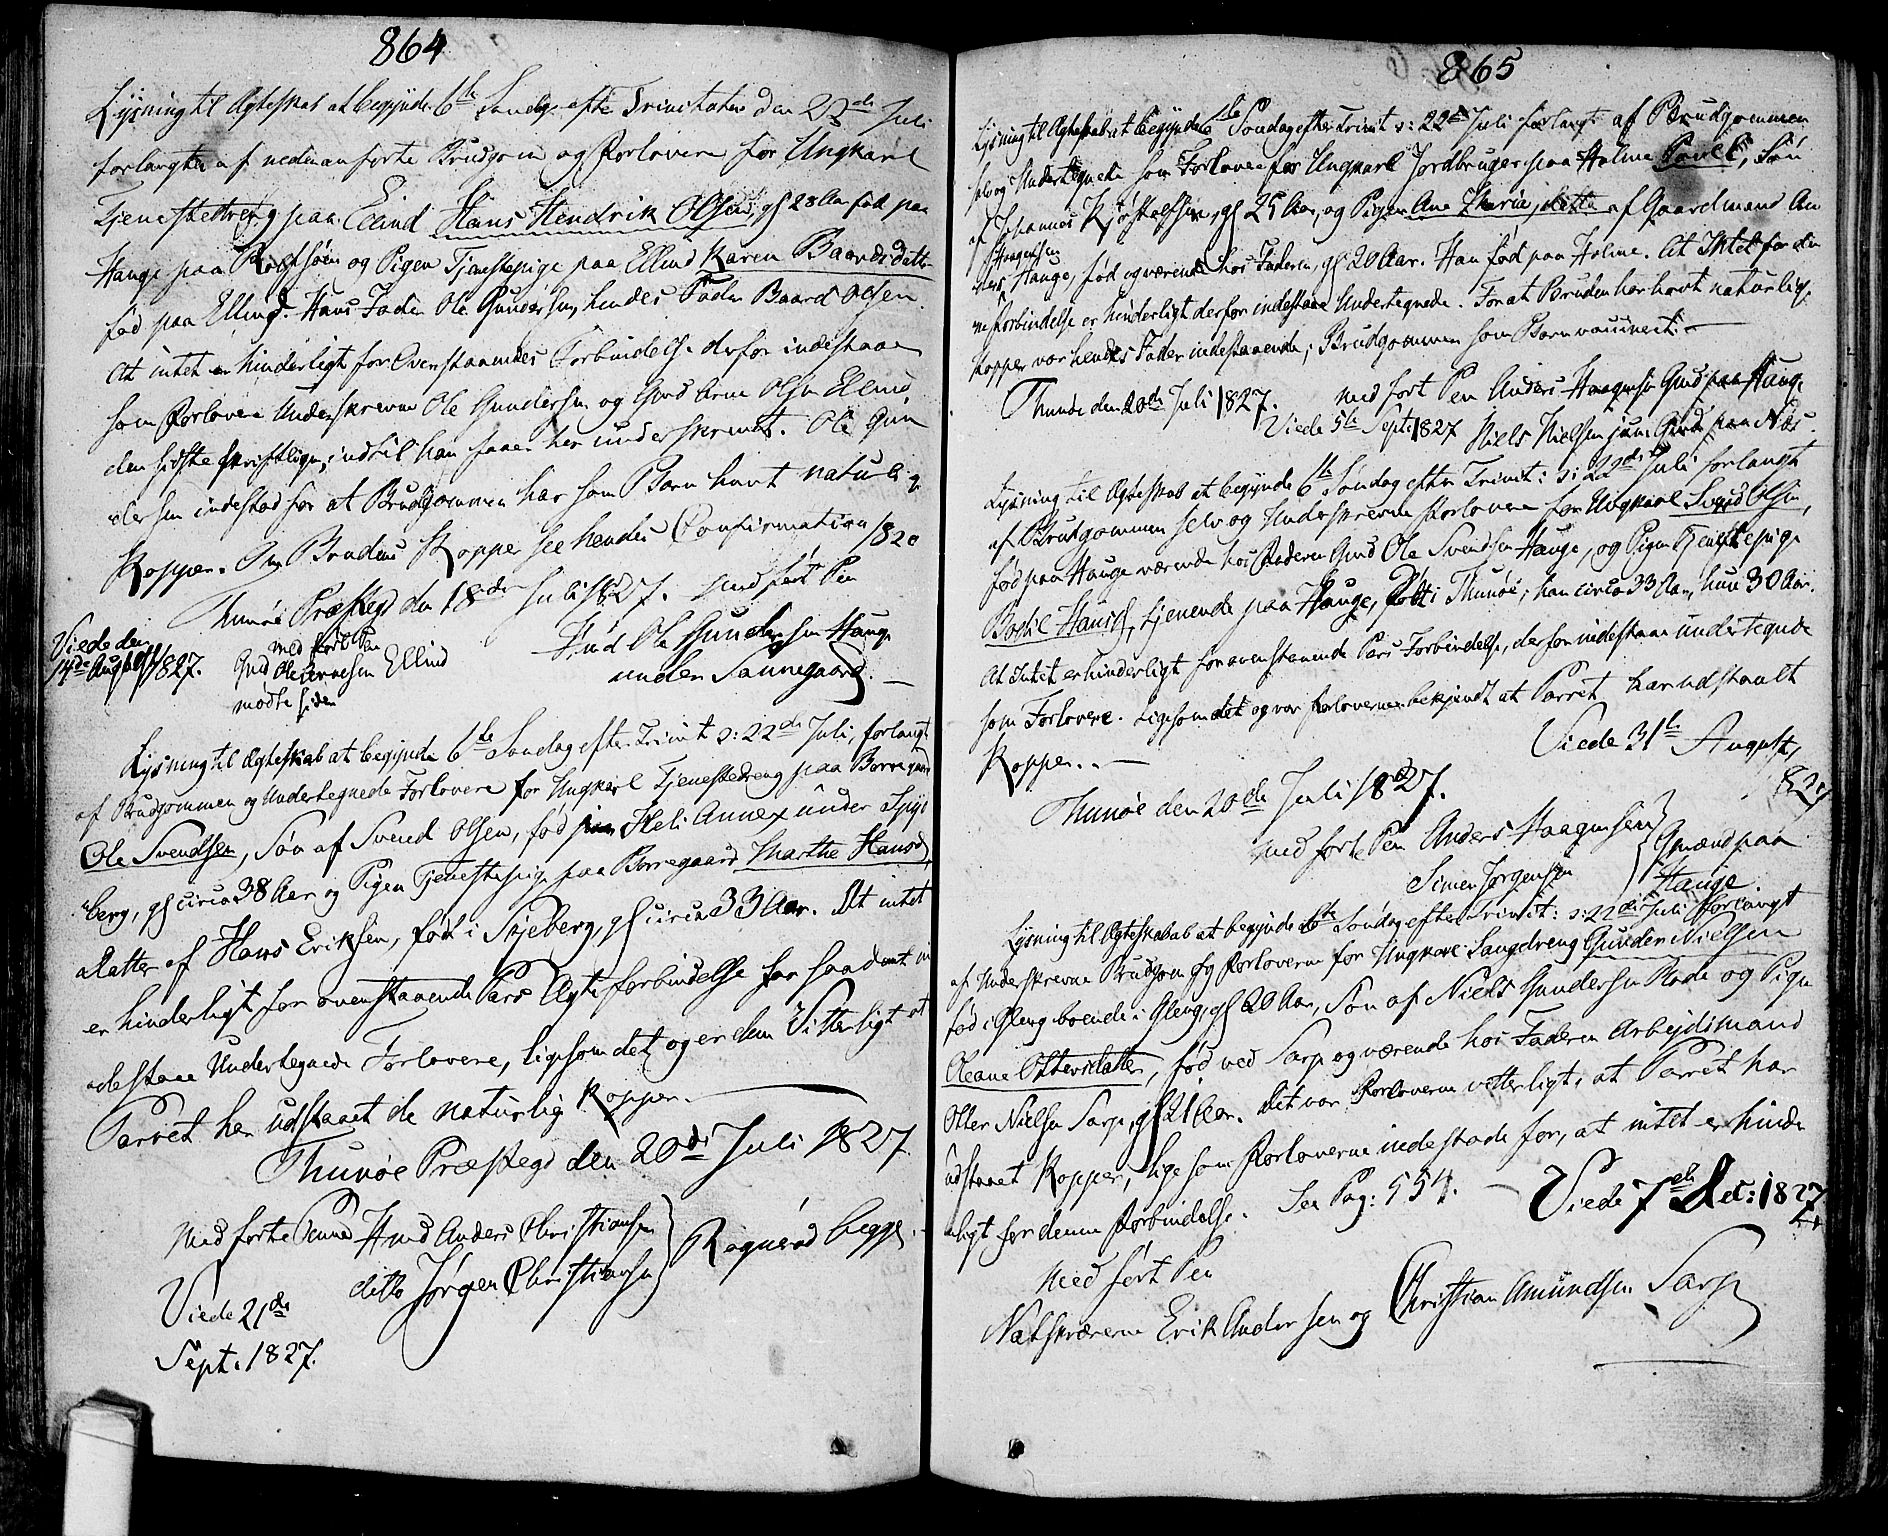 864
Lysning til Ægteskab at begynde 6te Søndag efter Trinitatis den 22de Juli
forlangtes af nedenanførte Brudgom og Forlovere for Ungkarl
Tjenestedreng paa Elind Hans Hendrik Olsen, gl 28 Aar fød paa
Hauge paa Rolfsøen og Pigen Tjenestepige paa Ellind Karen Baardsdatter
fød paa Elling. Hans Fader Ole Gundersen, hendes Fader Baard Olsen.
At intet er hinderligt for Ovenstaaendes Forbindelse derfor indestaae
som Forlovere Underskrevne Ole Gundersen og Gmd Arne Olsen Ellind,
den sidste skriftligen, indtil han faaer her underskrevet. Ole Gun
dersen indestod for at Brudgommen har som Barn havt naturlige
Kopper. Om Brudens Kopper see hendes Confirmation 1820
Thunøe Præstegd den 18de Juli 1827. med ført Pen
Viede den
14de August 1827.
med ført Pen
Gmd Ole Arnesen Ellind
mødte siden
Hmd Ole Gundersen Hauge
under Sannegaard. —
Lysning til Ægteskab at begynde 6te Søndag efter Trinit ɔ: 22de Juli, forlangt
af Brudgommen og Undertegnede Forlovere for Ungkarl Tjenestedreng paa Borregaard
Ole Svendsen, Søn af Svend Olsen, fød paa Heli Annex under Spyd
berg, gl circa 38 Aar og Pigen Tjenestepige paa Borregaard Marthe Hansd,
Datter af Hans Eriksen, fød i Skjeberg, gl circa 33 Aar. At intet
er hinderligt for ovenstaaende Pars Ægteforbindelse for saadant in
destaae Undertegnede Forlovere, ligesom det og er dem Vitterligt at
Parret har udstaaet de naturlige Kopper. —
Thunøe Præstegd den 20de Juli 1827.
Med førte Penne Hmd Anders Christiansen
ditto Jørgen Christiansen
Rognerød begge. —
Viede 21de
Sept. 1827.
865
Lysning til Ægteskab at begynde 6te Søndag efter Trinit ɔ: 22de Juli forlangt af Brudgommen
selv og Undertegnede som Forlovere for Ungkarl Jordbruger paa Holme Povel, Søn
af Johannes Kjøstelsen, gl 25 Aar, og Pigen Ane Marie, Datter af Gaardmand An
Haagensen
ders Hauge, fød og værende hos Faderen, gl 20 Aar. Han fød paa Holme. At Intet for den
ne Forbindelse er hinderligt derfor indestaae Undertegnede. For at Bruden har havt naturlige
Kopper var hendes Fader indestaaende; Brudgommen som Barn vaccineret. —
Thunøe den 20de Juli 1827. med ført Pen Anders Haagensen Gmd paa Hauge
Viede 5te Sept. 1827 Niels Nielsen jun. Gmd paa Næs.
Lysning til Ægteskab at begynde 6te Søndag efter Trinit: ɔ: 22de Juli forlangt
af Brudgommen selv og Underskrevne Forlovere for Ungkarl Svend Olsen,
fød paa Hauge værende hos Faderen Gmd Ole Svendsen Hauge, og Pigen Tjenestepige
Bodil Hansd, tjenende paa Hauge, født i Thunøe; han circa 33 Aar, hun 30 Aar.
At Intet er hinderligt for ovenstaaende Pars Forbindelse, derfor indestaae undertegnede
som Forlovere. Ligesom det og var Forloverne bekjendt at Parret har udstaaet
Kopper. — Viede 31te August,
1827
Thunøe den 20de Juli 1827.
med førte Pen Anders Haagensen
Simen Jørgensen
Gmænd paa
Hauge.
Lysning til Ægteskabab at begynde 6te Søndag efter Trinit: ɔ: 22de Juli forlangt
af Underskrevne Brudgom og Forloverne for Ungkarl Saugdreng Gunder Nielsen
fød i Gleng boende i Gleng, gl 20 Aar, Søn af Niels Gundersen Rode og Pigen
Oleane Ottersdatter, fød ved Sarp og værende hos Faderen Arbejdsmand
Otter Nielsen Sarp, gl 21 Aar. Det var Forloverne vitterligt, at Parret har
udstaaet Kopper, ligesom Forloverne indestode for, at intet er hinder
ligt for denne Forbindelse. See Pag: 554. — Viede 7de Dec: 1827
Med ført Pen
Natskræverne Erik Andersen og Christian Amundsen Sarp